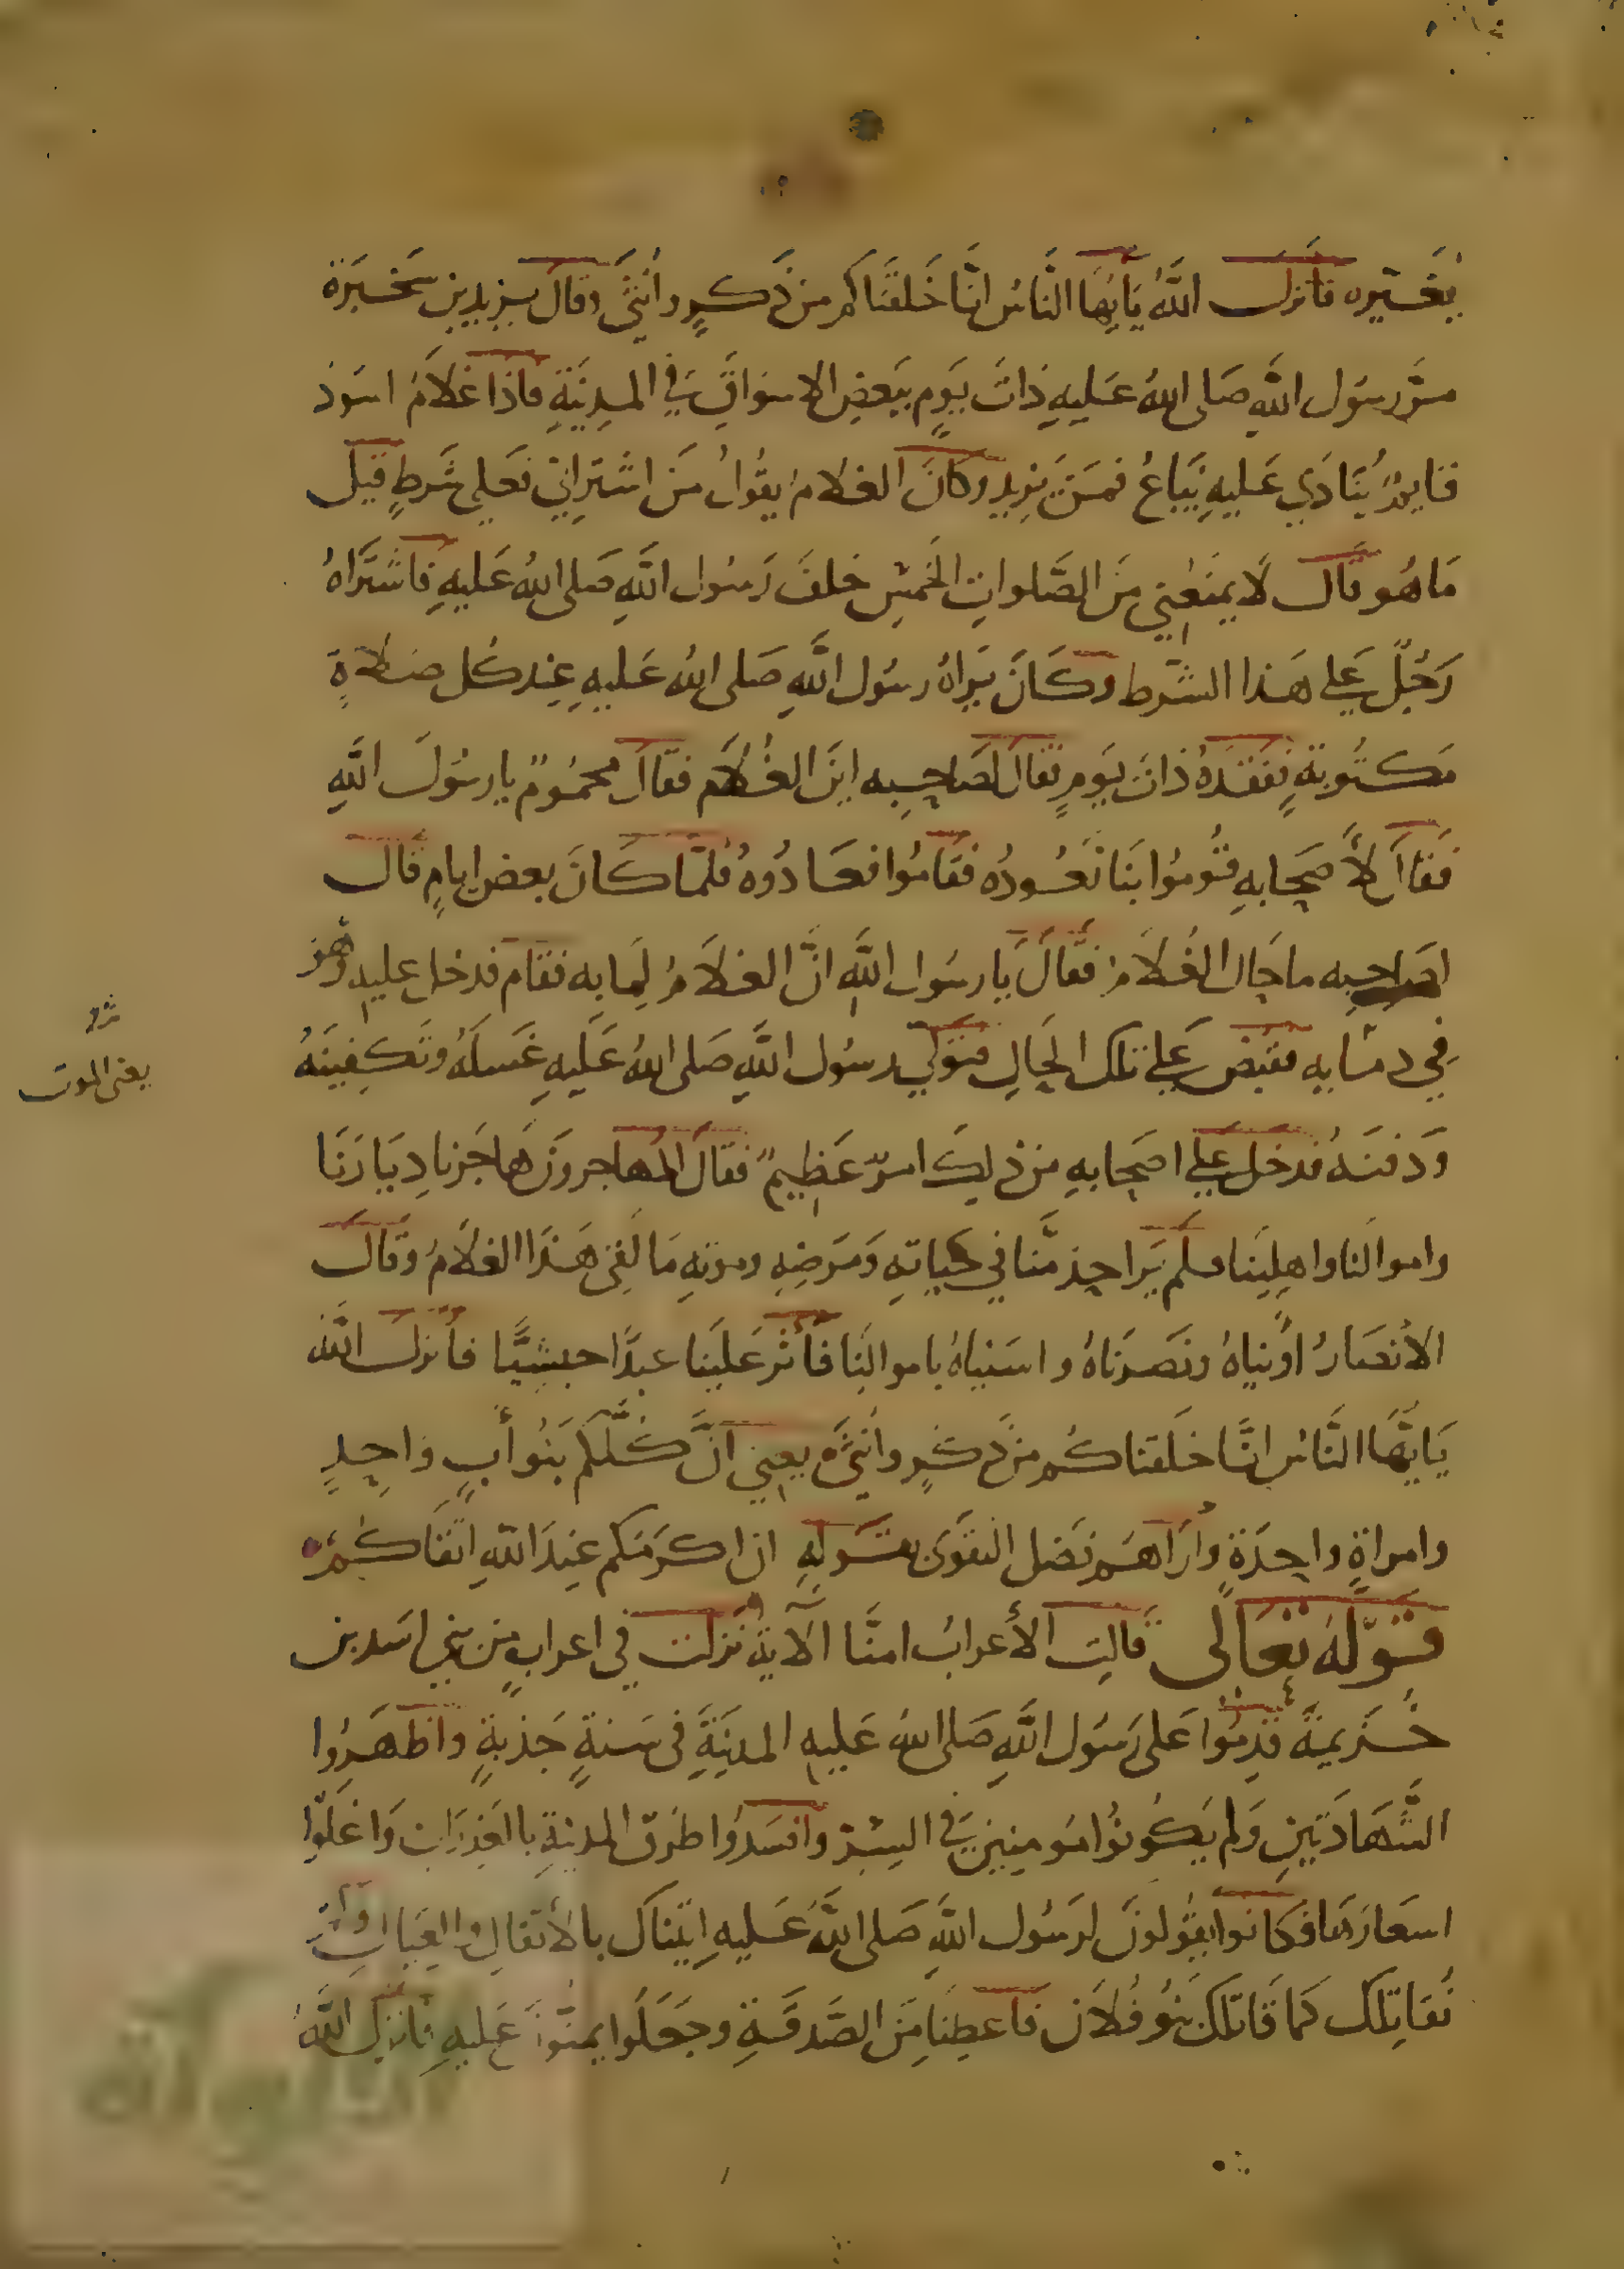 يغيره فأنزل الله يَأيُّها النَّاسُ انَّا خَلَقنَاكُم من ذَكَرٍ وانثَى وقالَ يزيد بن شخيرة
مرَّ رسُول اللَّهِ صَلى اللهُ عَليهِ ذاتَ يَومٍ ببَعضِ الاسوَاقِ في المدِينَةِ فاذا غلَامٌ اسوَد
قايمٌ يُنَادي عَليهِ يُبَاعُ فمَن يَزيد وكانَ الغلامُ يقُولُ مَن اشتَرانِي فعَلى شَرطٍ قيل
مَا هُو قال لَا يمنعُني منَ الصَّلواتِ الخَمسِ خلفَ رَسُول اللَّهِ صَلى اللهُ عَليهِ فاشتَراهُ
رَجُلٌ عَلى هَذا الشَّرط وكَانَ يَراهُ رسُول اللَّهِ صَلى اللهُ عَليهِ عِند كُل صَلاةٍ
مَكتُوبةٍ ففقَدهُ ذاتَ يَومٍ فقالَ لصَاحِبِه اينَ الغُلَام فقالَ محمُومٌ يا رسُولَ اللَّهِ
فقالَ لأَصحَابهِ قُومُوا بنَا نَعُودُه فقامُوا فعَادُوهُ فلمَّا كَانَ بعض ايامٍ قالَ
لصَاحِبِه ما حَال الغُلَام فقالَ يا رسُول اللَّهِ انَّ الغلَامَ لِمَا بِه فقَام فدخل عليهِ وهو
في ذمَايهِ فقُبِض عَلى تلك الحَالِ فتولَّى رسُول اللَّهِ صَلى اللهُ عَليهِ غَسلَهُ وتَكفِينَهُ
يعنى الموت
وَدَفنَهُ فدخَل عَلى اصحَابهِ من ذلِكَ امرٌ عَظِيمٌ فقالَ المُهاجرونَ هَاجَرنا دِيَارَنَا
واموالنا واهلِينا فلم يَر احدٌ منَّا في حَياتهِ وَمَرضِهِ وموتهِ مَا لَقِىَ هَذا الغلَامُ وقالَ
الأنصَارُ اوَيناهُ ونَصَرنَاهُ واسَيناهُ باموالِنَا فأثرَ عَلَينا عبدًا حبشِيًّا فأنزل اللَّهُ
يَايُّهَا النَّاسُ انَّا خلَقنَاكُم من ذَكَرٍ وانثَى يعني انَّ كُلّكُم بَنُو أبٍ وَاحِدٍ
وامراةٍ واحِدَةٍ وأرَاهُم فَضل التقوَى بقَولهِ ان اكرَمَكم عِندَ اللَّهِ اتقَاكُم
قَولُهُ تعَالى قالتِ الأعرابُ امنَّا الآيةُ نَزلت في اعرابٍ من بني اسَد بن
خُزيمَة قدِمُوا عَلى رَسُول اللَّهِ صَلى اللهُ عَليهِ المدِينَة فى سَنةٍ جَدْبةٍ واظهَرُوا
الشَّهَادَتَينِ وَلم يَكُونُوا مُومنِينَ في السِرّ وافسَدُوا طُرُق المدينةِ بالعَذِرَاتِ وَاغلَوا
اسعَارَهَا فكانوا يقُولونَ لرَسُول اللَّهِ صَلى اللَّهُ عَليهِ اتينَاك بالأثقالِ والعِيَالِ
نُقاتِلكَ كمَا قاتَلكَ بنُو فُلَان فاعطِنَا منَ الصَّدقَةِ وجَعَلُوا يمنُّونَ عَليهِ فانزل اللَّهُ